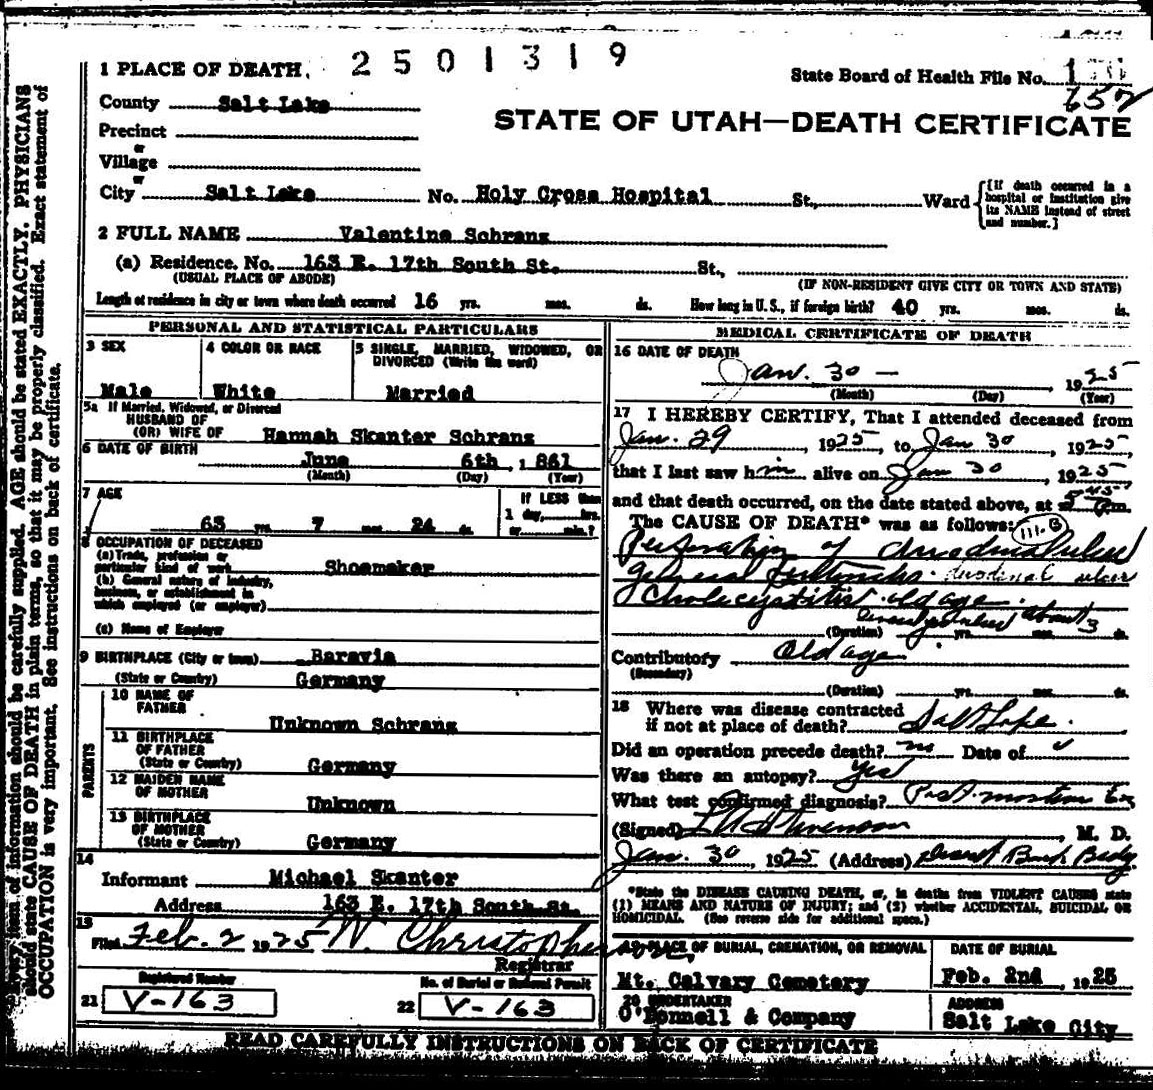 2501319
1 PLACE OF DEATH.
State Board of Health File No.
657
County Salt Lake
STATE OF UTAH—DEATH CERTIFICATE
Precinct
or
Village
or
City Salt Lake No. Holy Cross Hospital St., Ward
[If death occurred in a hospital or institution give its NAME instead of street and number.]
2 FULL NAME Valentine Schranz
(a) Residence. No. 163 E. 17th South St. St.,
(USUAL PLACE OF ABODE) (IF NON-RESIDENT GIVE CITY OR TOWN AND STATE)
Length of residence in city or town where death occurred 16 yrs. mos. ds. How long in U. S., if foreign birth? 40 yrs. mos. ds.
PERSONAL AND STATISTICAL PARTICULARS
3 SEX
Male
4 COLOR OR RACE
White
5 SINGLE, MARRIED, WIDOWED, OR
DIVORCED (Write the word)
Married
5a If Married, Widowed, or Divorced
HUSBAND OF
(OR) WIFE OF Hannah Skanter Schranz
6 DATE OF BIRTH
June 6th, 1861
(Month) (Day) (Year)
7 AGE
63 yrs. 7 mos. 24 ds.
If LESS than
1 day, hrs.
or min.?
8 OCCUPATION OF DECEASED
(a) Trade, profession or
particular kind of work Shoemaker
(b) General nature of industry,
business, or establishment in
which employed (or employer)
(c) Name of Employer
9 BIRTHPLACE (City or town) Baravia
(State or Country) Germany
PARENTS
10 NAME OF
FATHER
Unknown Schranz
11 BIRTHPLACE
OF FATHER
(State or Country) Germany
12 MAIDEN NAME
OF MOTHER
Unknown
13 BIRTHPLACE
OF MOTHER
(State or Country) Germany
14
Informant Michael Skanter
Address 163 E. 17th South St.
15
Filed Feb. 2 1925 W. Christopherson,
Registrar
Registered Number
21 V-163
No. of Burial or Removal Permit
22 V-163
MEDICAL CERTIFICATE OF DEATH
16 DATE OF DEATH
Jan. 30 — , 1925
(Month) (Day) (Year)
17 I HEREBY CERTIFY, That I attended deceased from
Jan. 29, 1925, to Jan 30, 1925,
that I last saw him alive on Jan 30, 1925
and that death occurred, on the date stated above, at 5 45 P m.
The CAUSE OF DEATH* was as follows: 111-B
Perforation of duodenal ulcer
general duodenal ulcer
Cholecystitis old age.
about 3
(Duration) yrs. mos. ds.
Contributory Old age
(Secondary)
(Duration) yrs. mos. ds.
18 Where was disease contracted
if not at place of death? Salt Lake.
Did an operation precede death? no Date of
Was there an autopsy? Yes
What test confirmed diagnosis? Post-mortem Ex
(Signed) Stevenson, M. D.
Jan. 30 1925 (Address) Deseret Bank Bldg
*State the DISEASE CAUSING DEATH, or, in deaths from VIOLENT CAUSES state
(1) MEANS AND NATURE OF INJURY; and (2) whether ACCIDENTAL, SUICIDAL OR
HOMICIDAL. (See reverse side for additional space.)
19 PLACE OF BURIAL, CREMATION, OR REMOVAL
Mt. Calvary Cemetery
DATE OF BURIAL
Feb. 2nd, 1925
20 UNDERTAKER
O'Donnell & Company
ADDRESS
Salt Lake City
READ CAREFULLY INSTRUCTIONS ON BACK OF CERTIFICATE
Every item of information should be carefully supplied. AGE should be stated EXACTLY. PHYSICIANS
should state CAUSE OF DEATH in plain terms, so that it may be properly classified. Exact statement of
OCCUPATION is very important. See instructions on back of certificate.